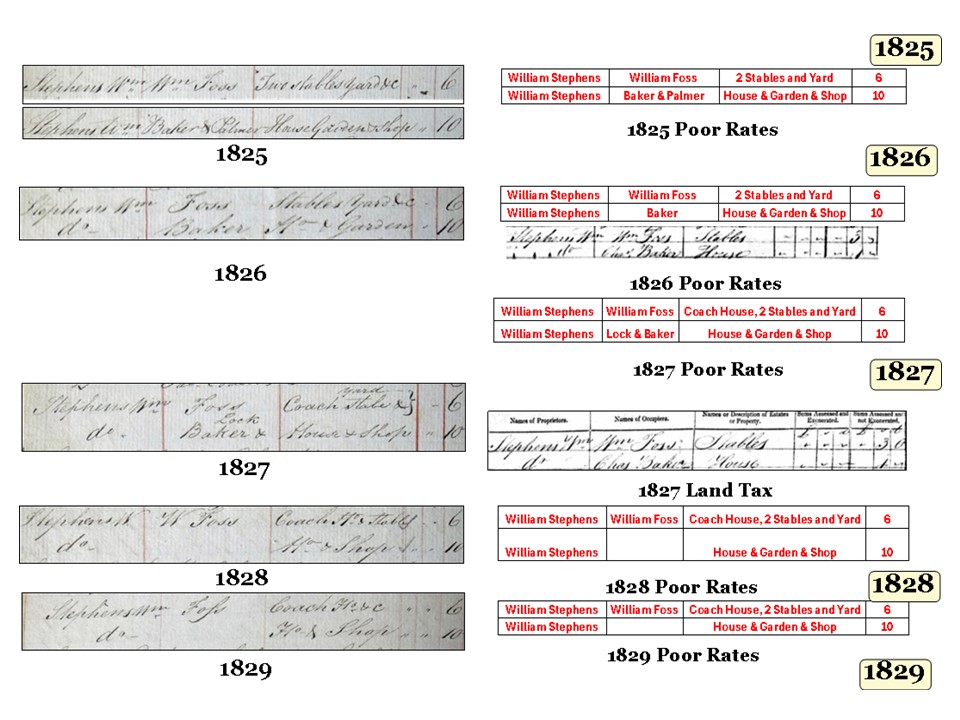 1825
Stephens Wm Wm Foss Two Stables Yard &c 6
Stephens Wm Baker & Palmer House Garden & Shop 10
1825
William Stephens William Foss 2 Stables and Yard 6
William Stephens Baker & Palmer House & Garden & Shop 10
1825 Poor Rates
1826
Stephens Wm Foss Stables Yard &c 6
do Baker Hse & Garden 10
1826
William Stephens William Foss 2 Stables and Yard 6
William Stephens Baker House & Garden & Shop 10
Stephens Wm Wm Foss Stables 3
do Chas Baker House
1826 Poor Rates
William Stephens William Foss Coach House, 2 Stables and Yard 6
William Stephens Lock & Baker House & Garden & Shop 10
1827 Poor Rates
1827
yard
Stephens Wm Foss Coach Stale & 6
Lock
do Baker & House & Shop 10
1827
Names of Proprietors. Names of Occupiers. Names or Description of Estates or Property. Sums Assessed and Exonerated. Sums Assessed and not Exonerated.
Stephens Wm Wm Foss Stables 3 0
do Chas Baker House 1
1827 Land Tax
Stephens W W Foss Coach Hs & Stables 6
do Hs & Shop 10
1828
William Stephens William Foss Coach House, 2 Stables and Yard 6
William Stephens House & Garden & Shop 10
1828 Poor Rates
1828
Stephens Wm Foss Coach Hs &c 6
do Hs & Shop 10
1829
William Stephens William Foss Coach House, 2 Stables and Yard 6
William Stephens House & Garden & Shop 10
1829 Poor Rates
1829